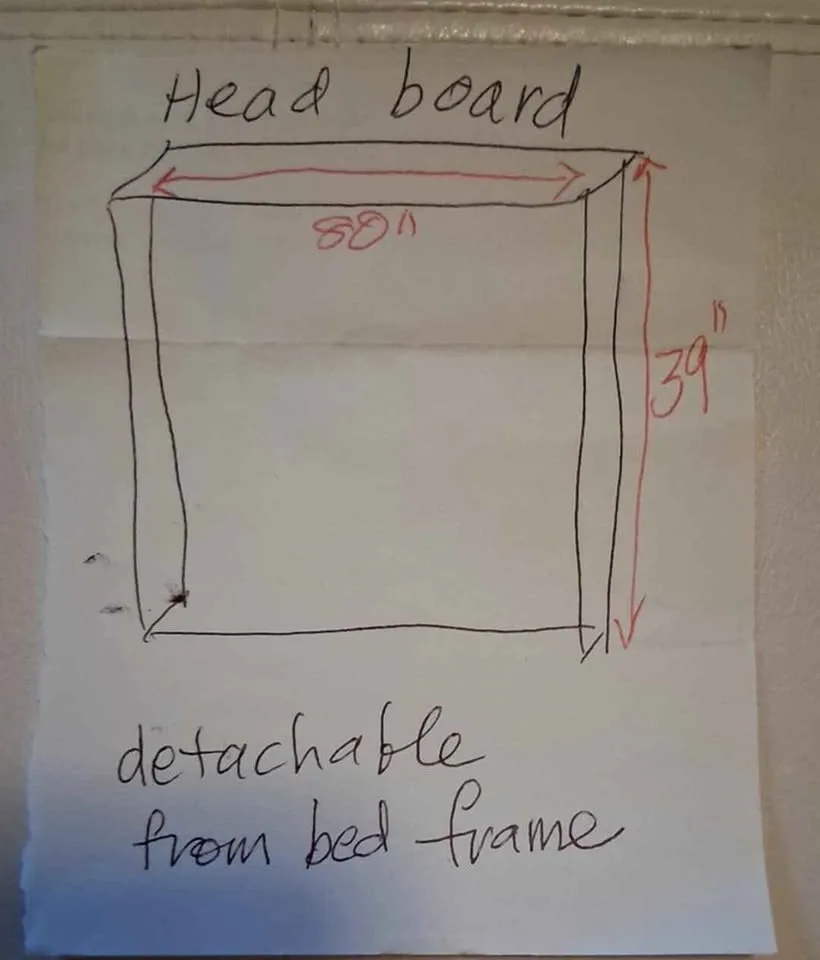 Head board
80"
39"
detachable
from bed frame